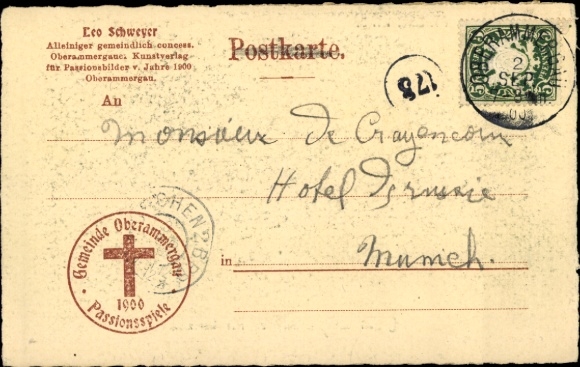 Leo Schweyer
Alleiniger gemeindlich concess.
Oberammergauer Kunstverlag
für Passionsbilder v. Jahre 1900
Oberammergau.
Postkarte.
An
175
2
SEP
Monsieur de Crayencour
Hotel
in Munich.
Gemeinde Oberammergau
1900
Passionsspiele